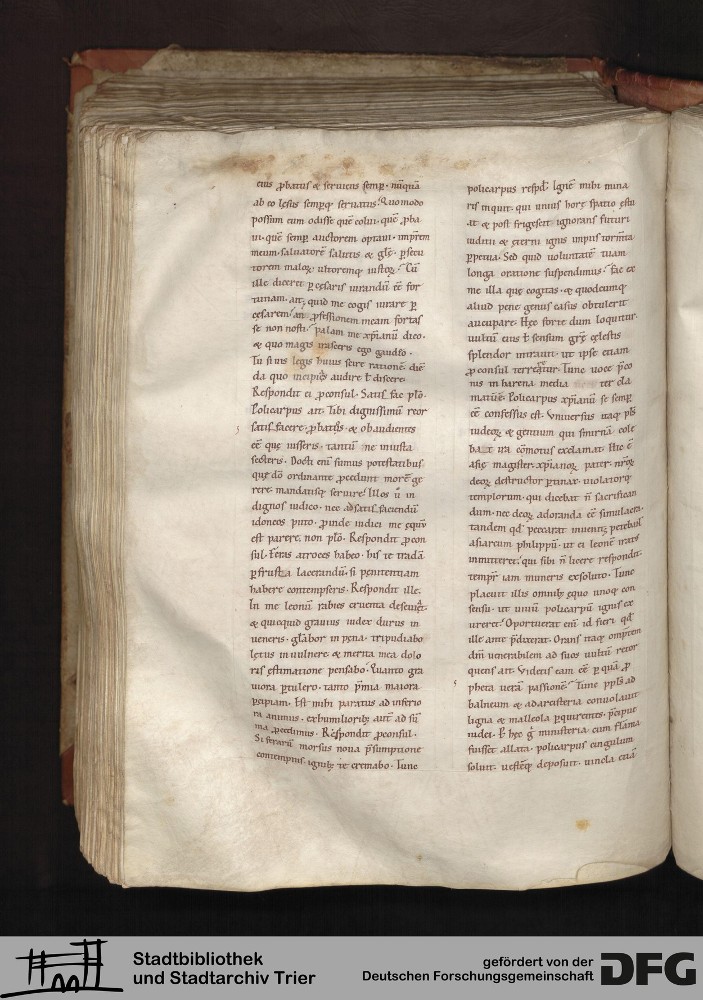 eius ꝓbatus & seruiens semꝑ. nūquā
ab eo lęsus semꝑq; seruatus. Quomodo
possum eum odisse quē colui. quē ꝓba
ui. quē semꝑ auctorem optaui. imꝑem
meum. saluatorē salutis & glę. ꝑsecu
torem maloꝝ. ultoremq; iustoꝝ. Cū
ille diceret ꝑ cęsaris iurandū eē for
tunam. ait; quid me cogis iurare ꝑ
cesarem. an ꝓfessionem meam fortas
se non nosti. palam me xp̄ianū dico.
& quo magis irasceris ego gaudeo.
Tu si uis legis huius scire rationē. diē
da quo incipies audire ł discere.
Respondit ei ꝓconsul. Satis fac plō.
Policarpus ait. Tibi dignissimū reor
satis facere. ꝓbatus. & obaudientē
eē quę iusseris. tantū ne iniusta
secteris. Docti enī sumus potestatibus
quę dō ordinante ꝓcedunt morē ge
rere. mandatisq; seruire. Illos ū in
dignos iudico. nec ad satis faciendū
idoneos puto. ꝓinde iudici me equū
est parere. non plō. Respondit ꝓcon
sul. Feras atroces habeo. his te tradā
ꝑfrusta lacerandū. si penitentiam
habere contempseris. Respondit ille.
In me leonū rabies cruenta deseuiet.
& quicquid grauius iudex durus in
ueneris. glabor in pena. tripudiabo
lętus in uulnere. & merita mea dolo
ris ęstimatione pensabo. Quanto gra
uiora ꝑtulero. tanto p̄mia maiora
ꝑcipiam. Est mihi paratus ad inferio
ra animus. ex humilioribꝫ autē ad sū
ma ꝓcedimus. Respondit ꝓconsul.
Si ferarū morsus noua p̄sumptione
contempnis. ignibꝫ te cremabo. Tunc
policarpus respd̄. Ignē mihi mina
ris inquit. qui unius horę spatio ęstu
at. & post frigescit. ignorans futuri
iuditii & ęterni ignis impiis tormta
ꝑpetua. Sed quid uoluntatē tuam
longa oratione suspendimus. fac ex
me illa quę cogitas. & quodcumq;
aliud pene genus casus obtulerit
aucupare. Hęc forte dum loquitur
uultū eius ł sensum grē cęlestis
splendor intrauit. ut ipse etiam
ꝓconsul terretur. Tunc uoce p̄co
nis in harena media ter cla
matū ē. Policarpus xp̄ianū se semꝑ
eē confessus est. Vniuersus itaq; pls
iudeoꝝ & gentium qui smirnā cole
bat ira cōmotus exclamat. Hic ē
asię magister. xp̄ianoꝝ pater. nr̄oꝝ
deoꝝ destructor ꝑtinax. uiolatorq;
templorum. qui dicebat n̄ sacrifican
dum. nec deoꝝ adoranda eē simulacra.
tandem qd̄ peccarat inuenit; petebant
asiarcam philippū. ut ei leonē iratū
inmitteret. qui sibi n̄ licere respondit.
tempr̄ iam muneris exsoluto. Tunc
placuit illis omnibꝫ equo unoq; con
sensu. ut uiuū policarpū ignis ex
ureret. Oportuerat enī id fieri qd̄
ille ante p̄dixerat. Orans itaq; omptem
dm̄ uenerabilem ad suos uultū retor
quens ait. Videtis eam eē ꝑ quā ꝓ
pheta uerā passionē. Tunc ppls ad
balneum & ad arcisteria conuolauit
ligna & malleola ꝑquirentes. p̄cipue
iudei. P hęc g̊ ministeria cum flāma
fuisset allata. policarpus cingulum
soluit. uestēq; deposuit. uincla etiā
Stadtbibliothek
und Stadtarchiv Trier
gefördert von der
Deutschen Forschungsgemeinschaft
DFG